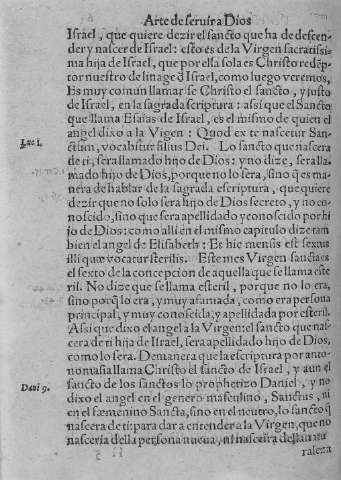 Arte de seruir a Dios
Israel, que quiere dezir el sancto que ha de descen-
der y nascer de Israel: esto es de la Virgen sacratissi-
ma hija de Israel, que por ella sola es Christo redēp-
tor nuestro de linage d̄ Israel, como luego veremos,
Es muy comun llamar se Christo el sancto, y justo
de Israel, en la sagrada scriptura: assi que el Sancto
que llama Esaias de Israel, es el mismo de quien el
angel dixo a la Vigen: Quod ex te nascetur San-
Luc. 1.
ctum, vocabitur filius Dei. Lo sancto que nascera
de ti, sera llamado hijo de Dios: y no dize, sera lla-
mado hijo de Dios, porque no lo sera, sino q̄ es ma-
nera de hablar de la sagrada escriptura, que quiere
dezir que no solo sera hijo de Dios secreto, y no co-
noscido, sino que sera apellidado y conoscido por hi
jo de Dios: como alli en el mismo capitulo dize tam
bien el angel de Elisabeth: Et hic mensis est sextus
illi quæ vocatur sterilis. Este mes Virgen sancta es
el sexto de la concepcion de aquella que se llama este
ril. No dize que se llama esteril, porque no lo era,
sino porq̄ lo era, y muy afamada, como era persona
principal, y muy conoscida, y apellidada por esteril.
Assi que dixo el angel a la Virgen: el sancto que nas-
cera de ti hija de Israel, sera apellidado hijo de Dios,
como lo sera. De manera que la escriptura por anto-
nomasia llama Christo el sancto de Israel, y aun el
Dani 9.
sancto de los sanctos lo prophetizo Daniel, y no
dixo el angel en el genero masculino, Sanctus, ni
en el fœmenino Sancta, sino en el neutro, lo sancto q̄
nascera de ti: para dar a entender a la Virgen, que no
nasceria della persona nueua, ni nasceria della natu
raleza